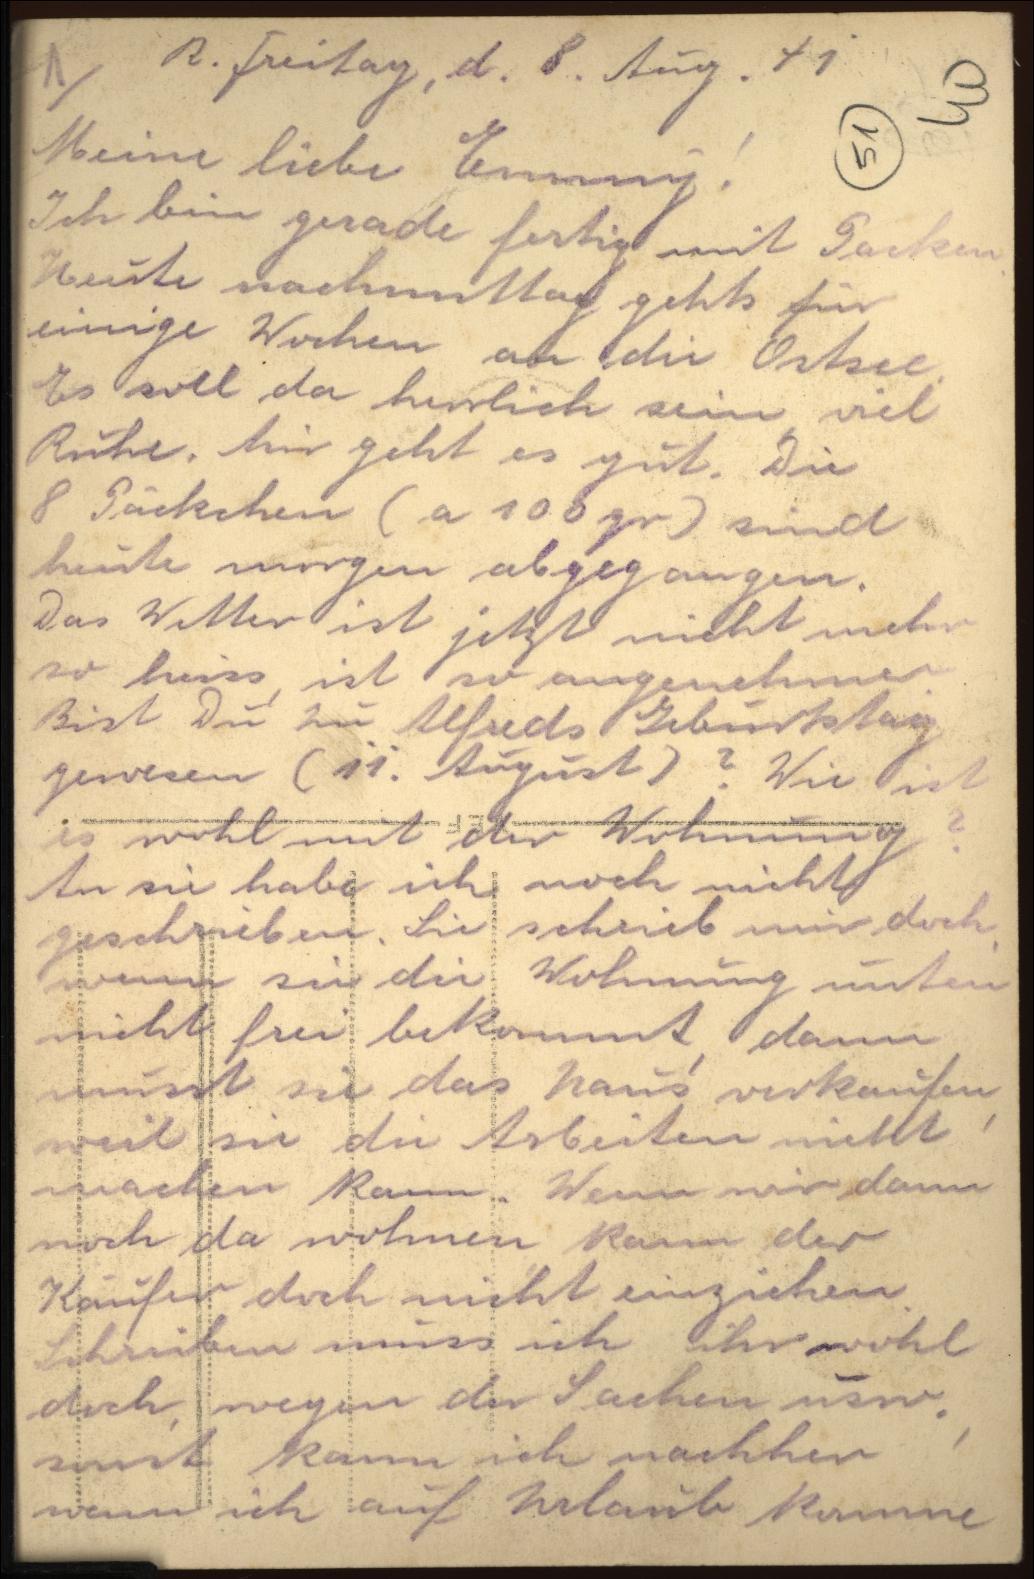 1/ R. Freitag, d. 8. Aug. 41
51
Meine liebe Emmy!
Ich bin gerade fertig mit Packen.
Heute nachmittag gehts für
einige Wochen an die Ostsee.
Es soll da herrlich sein, viel
Ruhe. Mir geht es gut. Die
8 Päckchen (a 100 gr) sind
heute morgen abgegangen.
Das Wetter ist jetzt nicht mehr
so heiss, ist so angenehmer
Bist Du zu Alfreds Geburtstag
gewesen (11. August)? Wie ist
es wohl mit der Wohnung?
An sie habe ich noch nicht
geschrieben. Sie schrieb mir doch,
wenn sie die Wohnung unten
nicht frei bekommt, dann
musst sie das Haus verkaufen,
weil sie die Arbeiten nicht
machen kann. Wenn wir dann
noch da wohnen kann der
Käufer doch nicht einziehen.
Schreiben muss ich ihr wohl
doch, wegen der Sachen usw.,
sonst kann ich nachher
wenn ich auf Urlaub komme